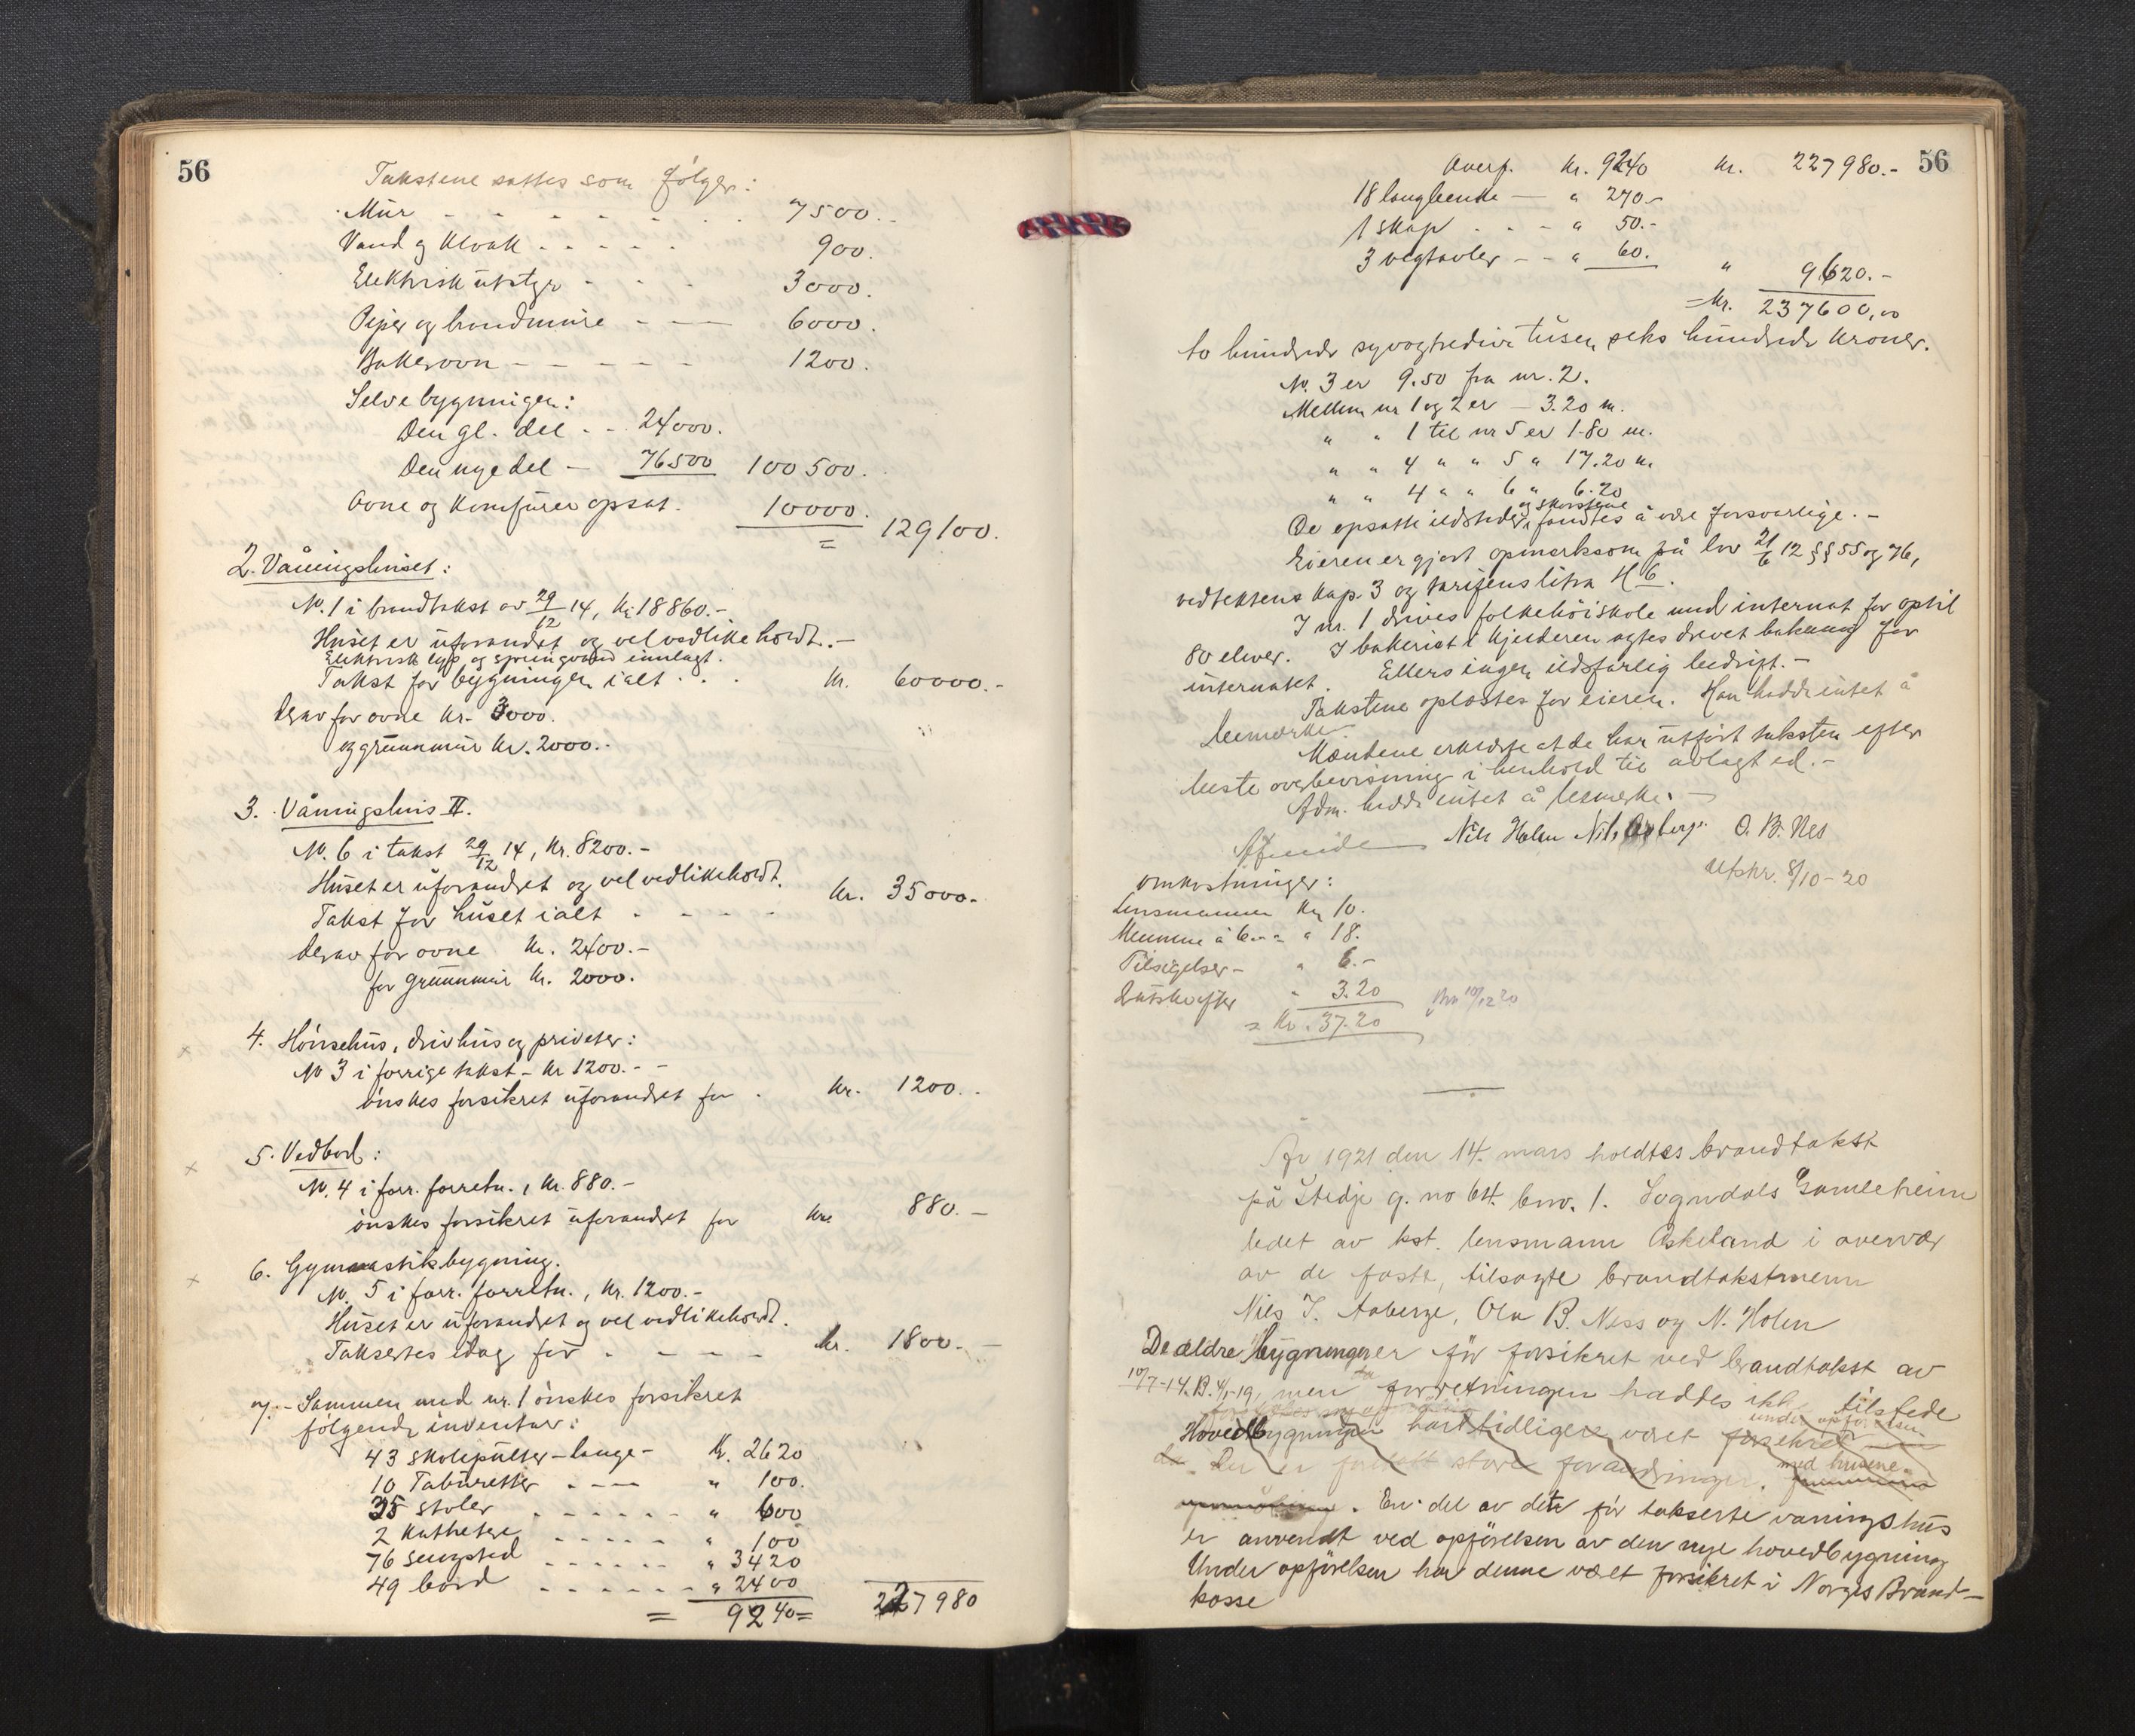 56
Takstene sattes som følger:
Mur - - - - - - - 7500.-
Vand og kloak - - - - - 900.
Elektrisk utstyr - - - 3000.
Piper og brandmure - - - 6000.
Bakerovn - - - - - 1200.
Selve bygningen:
Den gl. del - - 24000.
Den nye del - 76500 100500.
Ovne og komfurer opsat. 10000.
= 129100.
2. Våningshuset:
No. 1 i brandtakst av 29/12 14, Kr. 18860.-
Huset er uforandret og vel vedlikeholdt.-
Elektrisk lys og springvand innlagt.
Takst for bygningen ialt . . . kr. 60000.-
Derav for ovne kr. 3000.
og grunnmur kr. 2000.-
3. Våningshus II.
No. 6 i takst 29/12 14, kr. 8200.-
Huset er uforandret og vel vedlikeholdt.
Takst for huset ialt - - - - kr. 35000.-
Derav for ovne kr. 2400.-
for grunnmur kr. 2000.
4. Hønsehus, drivhus og priveter:
No 3 i forrige takst - kr 1200.- -
ønskes forsikret uforandret for . kr. 1200. .
5. Vedbod:
No. 4 i forr. forretn., kr. 880.-
ønskes forsikret uforandret for kr. 880.-
6. Gymnastikbygning.
No. 5 i forr. forretn., kr. 1200.-
Huset er uforandret og vel vedlikeholdt.
Takseres idag for - - - - kr. 1800.-
7.- Sammen med nr. 1 ønskes forsikret
følgende inventar:
43 skolepulter - lange - Kr. 2620
10 Taburetter - - - " 100.
35 stoler - - - - - - " 600
2 Kathetre - - - - - " 100
76 sengsted - - - - - - " 3420
49 bord - - - - - - " 2400
= 9240= 227980
56
Overf. Kr. 9240 Kr. 227980.-
18 langbenke - " 270.-
1 skap - - - " 50.-
3 vegtavler - - " 60. " 9620.-
= Kr. 237600,00
to hundrede syvogtredive tusen seks hundrede kroner.
No. 3 er 9.50 fra nr. 2.
Mellem nr 1 og 2 er - 3.20 m.
" " 1 til nr 5 er 1.80 m.
" " 4 " " 5 " 17.20 m.
" " 4 " " 6 " 6.20
og skorstene
De opsatte ildsteder fandtes å være forsvarlige.-
Eieren er gjort opmerksom på lov 21/6 12 §§ 55 og 76,
vedtektens kap. 3 og tarifens litra H 6.
I nr. 1 drives folkehøiskole med internat for optil
80 elever. I bakeriet i kjelderen agtes drevet bakning for
internatet. Ellers ingen ildsfarlig bedrift.-
Takstene oplæstes for eieren. Han hadde intet å
bemerke.
Mændene erklærte at de har utført taksten efter
beste overbevisning i henhold til avlagt ed.-
Adm. hadde intet å bemerke.-
Nils Holen Nils Aaberge O. B. Nes
Utskr. 8/10-20
Omkostninger:
Lensmannen Kr. 10.
Mennene à 6.- " 18.
Tilsigelser - " 6.-
Utskrifter " 3.20
= Kr. 37.20
År 1921 den 14. mars holdtes brandtakst
på Stedje g. no 64. bno. 1. Sogndals Gamleheim
ledet av kst. lensmann Askeland i overvær
av de faste, tilsagte brandtakstmenn
Nils J. Aaberge, Ola B. Ness og N. Holen
De ældre bygninger er før forsikret ved brandtakst av
10/7-14. B. 4/1-19, men forretningen haddes ikke tilstede
under opførelsen
Hovedbygningen har tidligere været forsikret
de. Der er foretatt store forandringer. med husene.
. En del av det før takserte våningshus
er anvendt ved opførelsen av den nye hovedbygning
Under opførelsen har denne været forsikret i Norges Brand-
kasse